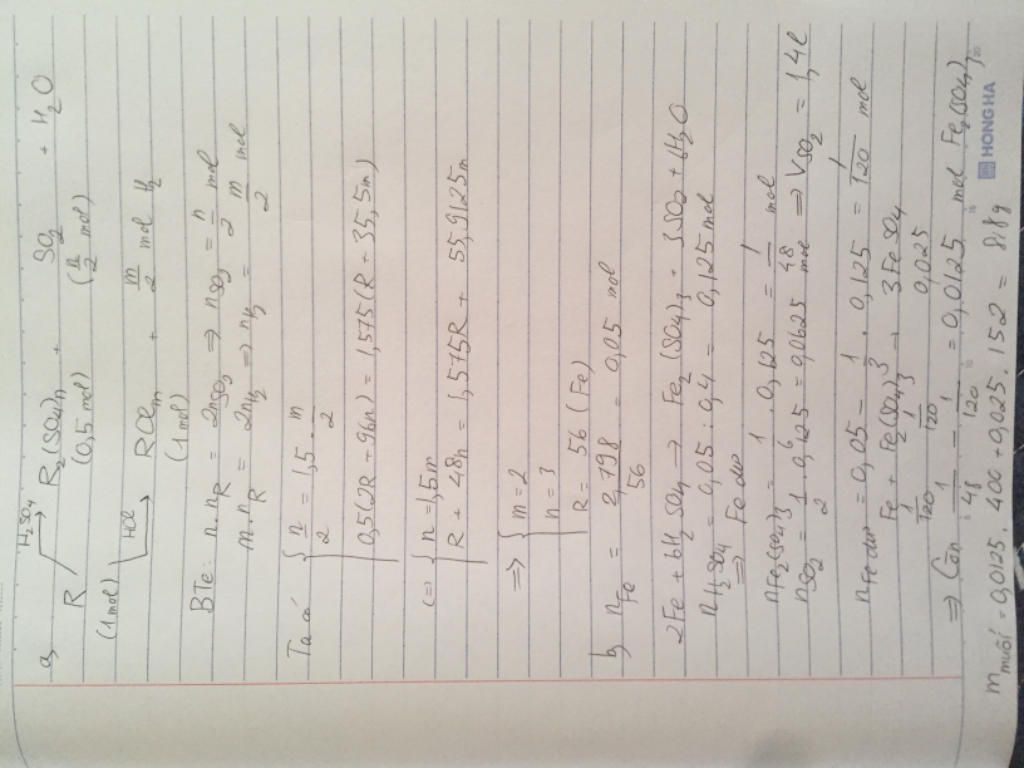 a,
H2SO4
R → R2(SO4)n + SO2 + H2O
(0,5 mol) (n/2 mol)
(1 mol) HCl → RClm + m/2 mol H2
(1 mol)
BTe: n.nR = 2nSO2 ⇒ nSO2 = n/2 mol
m.nR = 2nH2 ⇒ nH2 = m/2 mol
Ta có { n/2 = 1,5 . m/2
0,5(2R + 96n) = 1,575(R + 35,5m)
(=) { n = 1,5m
R + 48n = 1,575R + 55,9125m
⇒ { m = 2
n = 3
R = 56 (Fe)
b, nFe = 2,798/56 = 0,05 mol
2Fe + 6H2SO4 → Fe2(SO4)3 + 3SO2 + 6H2O
nH2SO4 = 0,05 : 0,4 = 0,125 mol
⇒ Fe dư
nFe2(SO4)3 = 1/6 . 0,125 = 1/48 mol
nSO2 = 1/2 . 0,125 = 0,0625 mol ⇒ VSO2 = 1,4l
nFe dư = 0,05 - 1/3 . 0,125 = 1/120 mol
Fe + Fe2(SO4)3 → 3FeSO4
1/120 1/120 0,025
⇒ Còn 1/48 - 1/120 = 0,0125 mol Fe2(SO4)3
m muối = 0,0125 . 400 + 0,025 . 152 = 8,8g
HONG HA